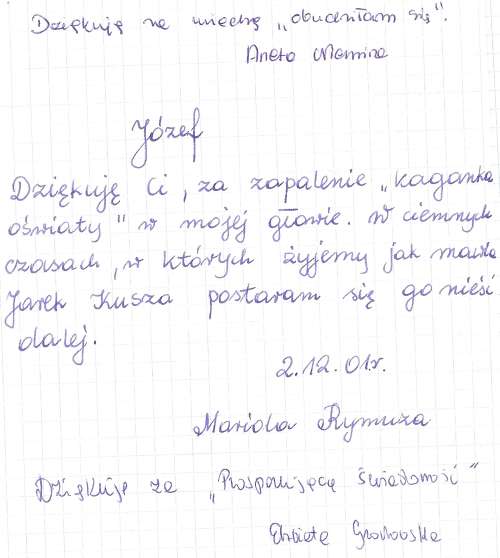 Dziękuję za wiedzę „obudziłam się".
Aneta
Józef
Dziękuję Ci, za zapalenie „kaganka
oświaty" w mojej głowie. W ciemnych
czasach, w których żyjemy jak mawia
Jarek Kusza postaram się go nieść
dalej.
2.12.01r.
Mariola Rymuza
Dziękuję za „Prosperującą świadomość"
Elżbieta